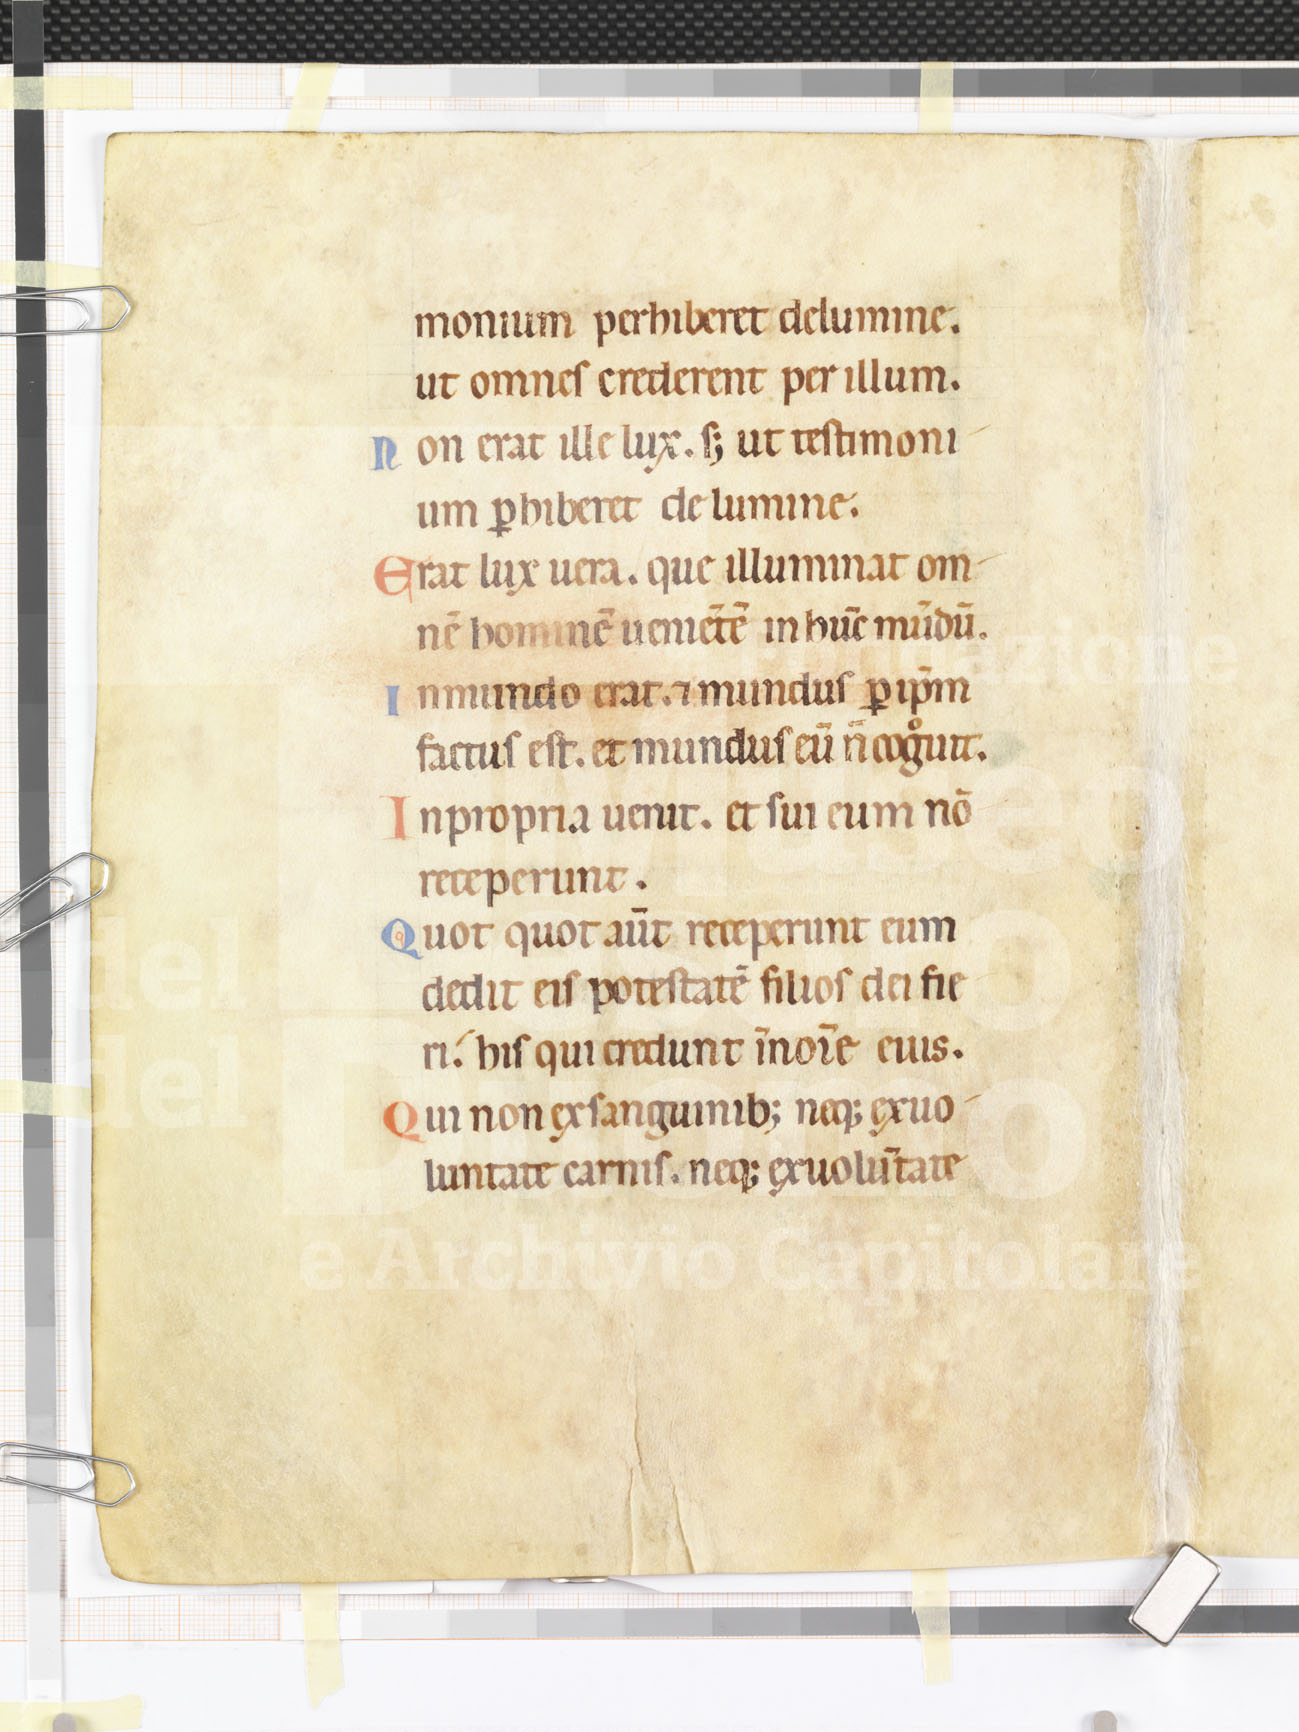 monium perhiberet delumine.
ut omnes crederent per illum.
Non erat ille lux. s; ut testimoni
um ꝑhiberet de lumine.
Erat lux uera. que illuminat om
nē hominē ueniētē in hūc mūdū.
Inmundo erat. ⁊ mundus ꝑ ip̄m
factus est. et mundus eū n̄ cogͦuit.
Inpropria uenit. et sui eum nō
receperunt.
Quot quot aūt receperunt eum
dedit eis potestatē filios dei fie
ri. his qui credunt īnoīe eius.
Qui non exsanguinib; neq; exuo
luntate carnis. neq; exuolūtate
Fondazione
Museo
del
del Duomo
e Archivio Capitolare